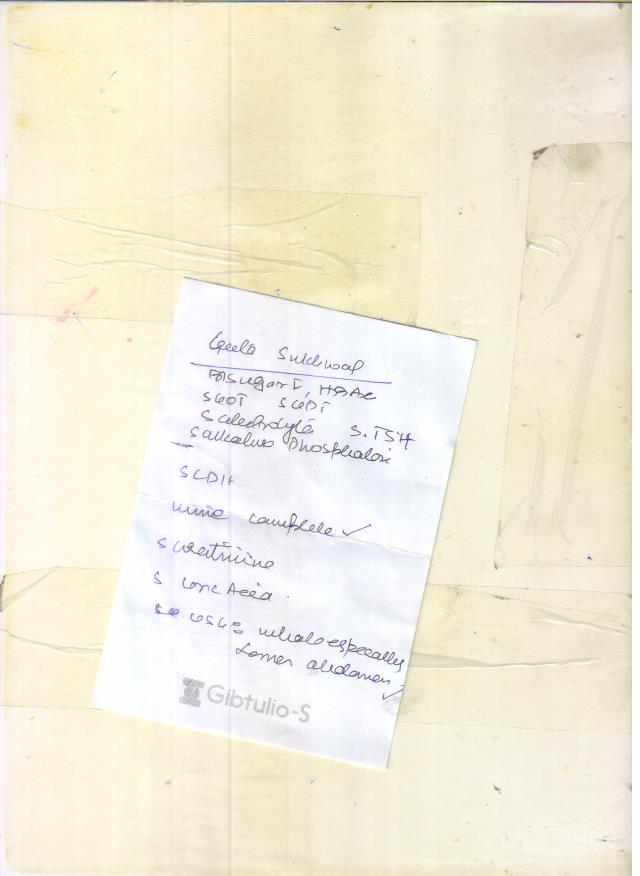 Geeta
F.Sugar I, HBAic
SGOT SGPT
S electrolyte S.TSH
S alkaline Phosphatase
S LDH
urine complete ✓
S creatinine
S Uric Acid.
USG whole especially
Lower abdomen ✓
Gibtulio-S